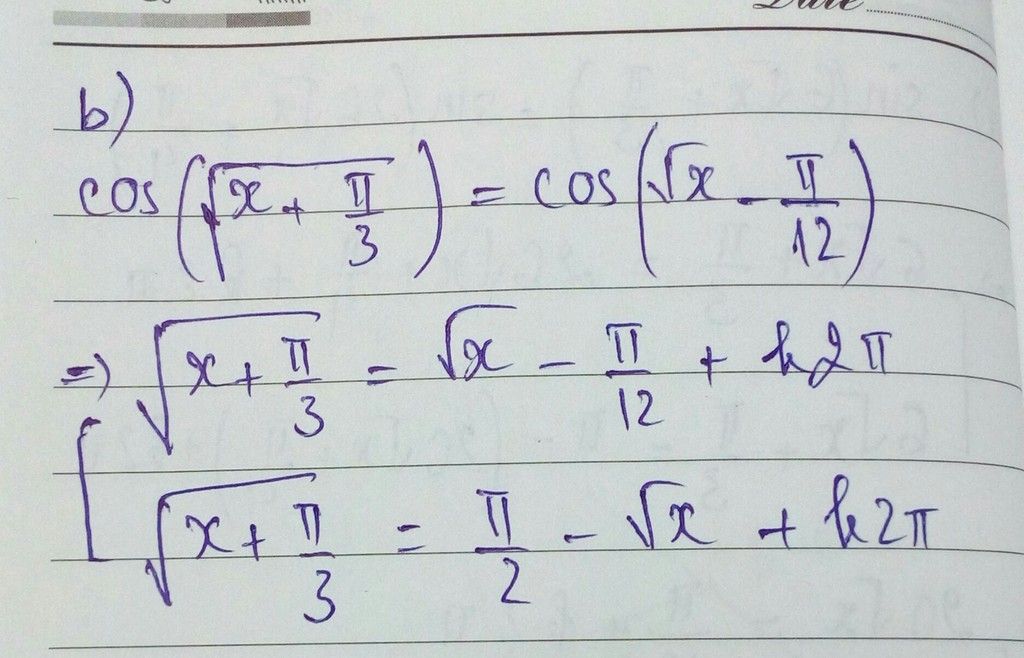 Date
b)
cos(√(x + π/3)) = cos(√x - π/12)
=> √(x + π/3) = √x - π/12 + k2π
[ √(x + π/3) = π/2 - √x + k2π